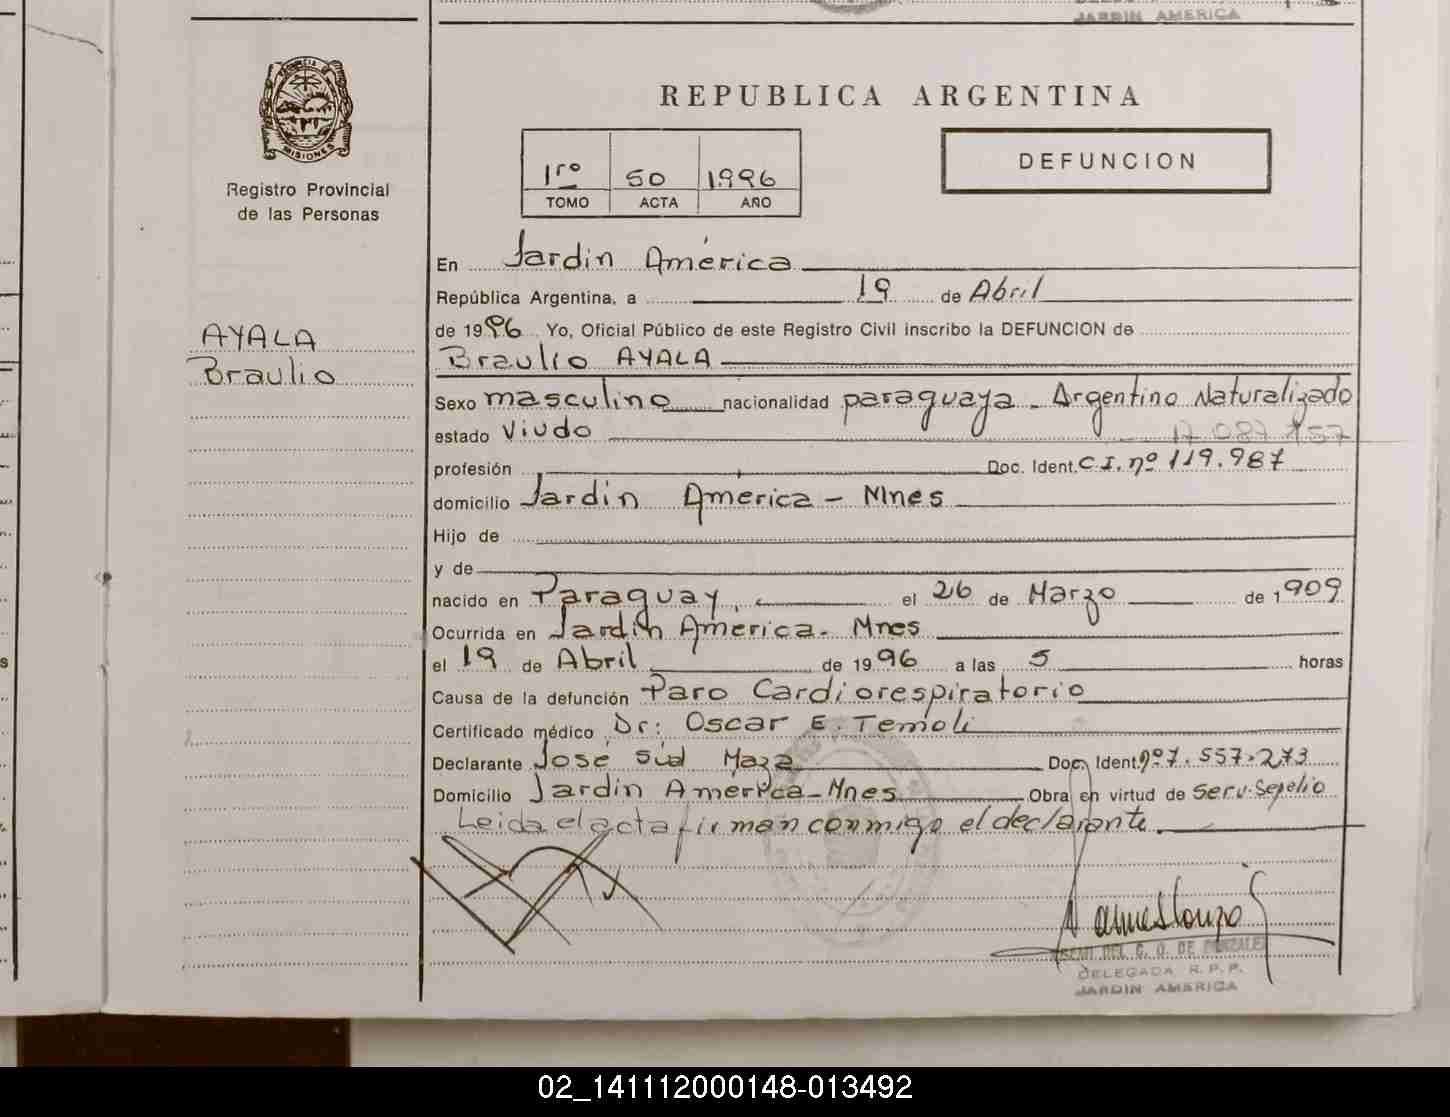 JARDIN AMERICA
PROVINCIA DE
MISIONES
Registro Provincial
de las Personas
REPUBLICA ARGENTINA
1ro 50 1996
TOMO ACTA AÑO
DEFUNCION
AYALA
Braulio
En Jardin América
República Argentina, a 19 de Abril
de 1996 Yo, Oficial Público de este Registro Civil inscribo la DEFUNCION de
Braulio AYALA
Sexo masculino nacionalidad paraguaya - Argentino Naturalizado
estado Viudo
profesión Doc. Ident. C.I. nº 119.987
domicilio Jardin America - Mnes
Hijo de
y de
nacido en Paraguay, el 26 de Marzo de 1909
Ocurrida en Jardin América - Mnes
el 19 de Abril de 1996 a las 5 horas
Causa de la defunción Paro Cardiorespiratorio
Certificado médico Dr: Oscar E. Temoli
Declarante José Sud Maza Doc. Ident. nº 7.557.273
Domicilio Jardin América - Mnes Obra en virtud de serv. Sepelio
Leida el acta firman conmigo el declarante
DEL C. G. DE GONZALEZ
DELEGADA R. P. P.
JARDIN AMERICA
02_141112000148-013492